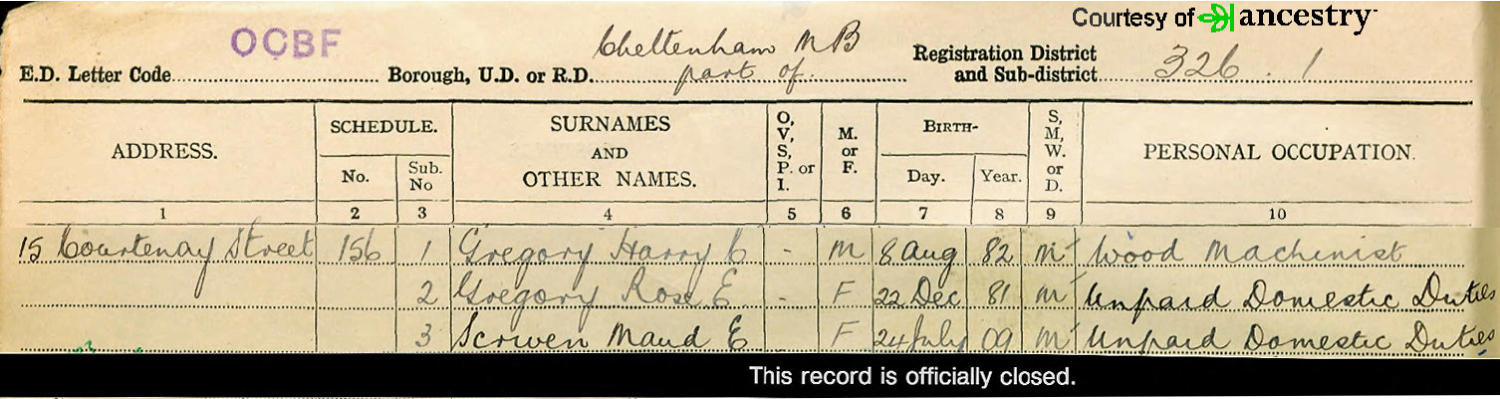 Courtesy of ancestry
OCBF
Cheltenham M B
E.D. Letter Code Borough, U.D. or R.D. part of Registration District and Sub-district 326 . 1
ADDRESS. SCHEDULE. SURNAMES AND OTHER NAMES. O, V, S, P. or I. M. or F. BIRTH- S, M, W. or D. PERSONAL OCCUPATION.
No. Sub. No Day. Year.
1 2 3 4 5 6 7 8 9 10
15 Courtenay Street 156 1 Gregory Harry C - M 8 Aug 82 M Wood Machinist
2 Gregory Rose E - F 22 Dec 81 M Unpaid Domestic Duties
3 Scriven Maud E F 24 July 09 M Unpaid Domestic Duties
This record is officially closed.